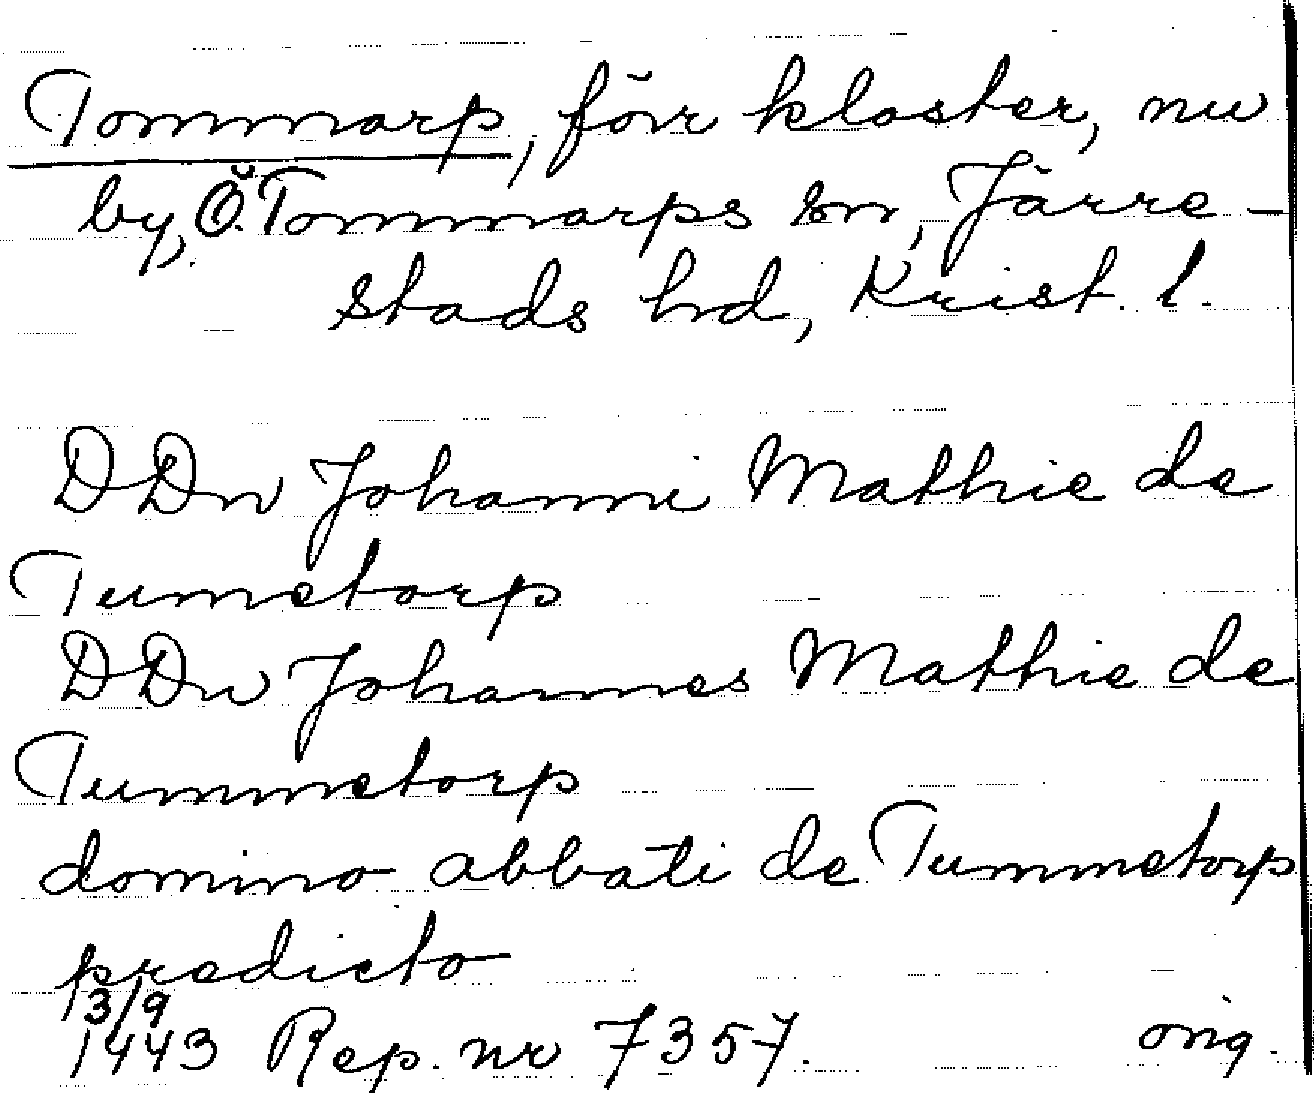 Tommarp, förr kloster, nu
by, Ö. Tommarps sn, Järre-
stads hd, Krist. l.
DDn Johanni Mathie de
Tumetorp
DDn Johannes Mathie de
Tummetorp
domino abbati de Tummetorp
predicto
13/9
1443 Rep. nr 7357. orig.